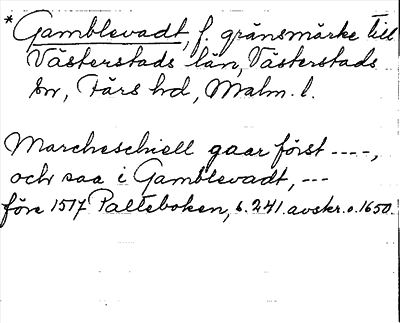 * Gamblevadt, f. gränsmärke till
Västerstads län, Västerstads
sn, Färs hd, Malm. l.
Marcheschiell gaar först ----,
och saa i Gamblevadt, ---
före 1517 Palteboken, s. 241. avskr. o. 1650.